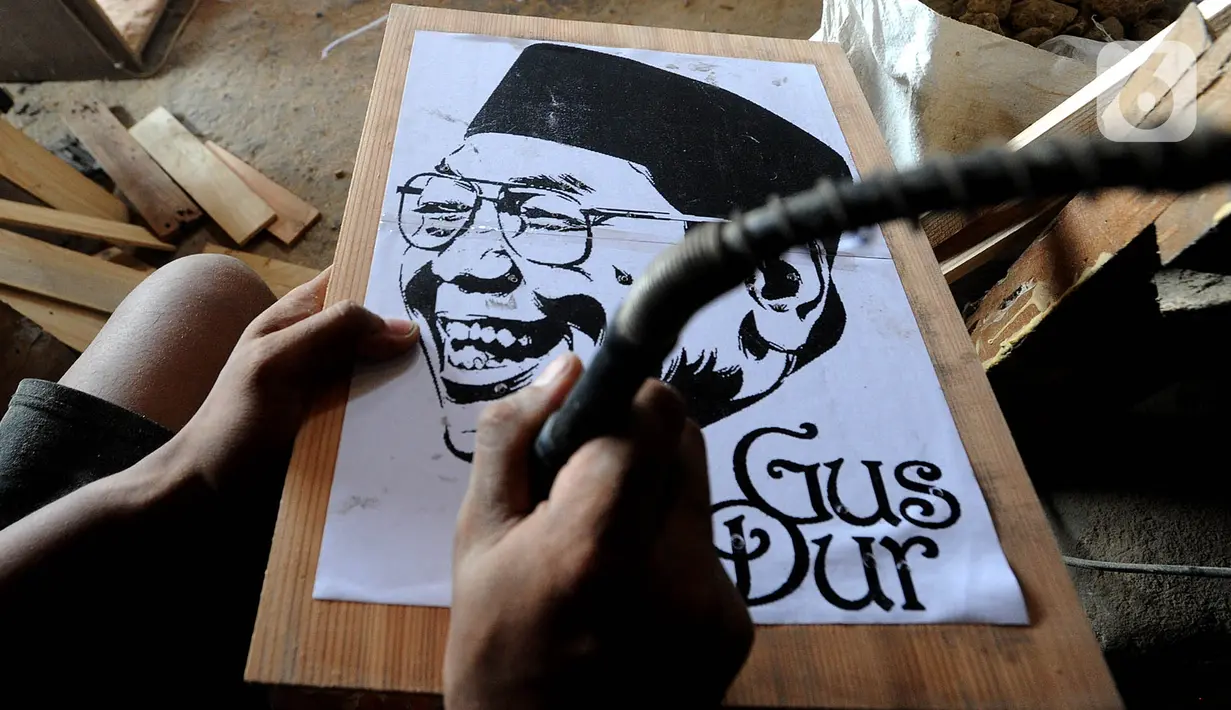 Gus
Dur